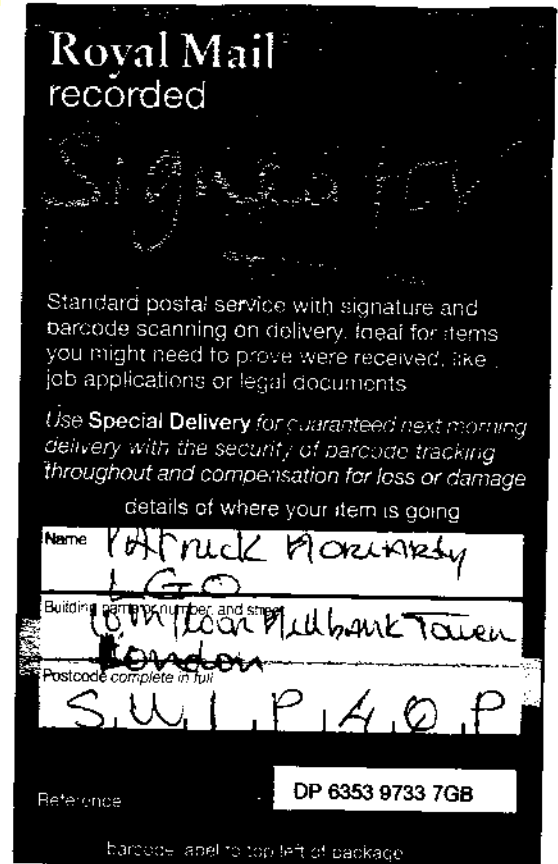 Royal Mail
recorded
Signed for
Standard postal service with signature and
barcode scanning on delivery. Ideal for items
you might need to prove were received, like
job applications or legal documents
Use Special Delivery for guaranteed next morning
delivery with the security of barcode tracking
throughout and compensation for loss or damage
details of where your item is going
Name Patrick Moriarty
LGO
Building name or number, and street
10th floor Millbank Tower
London
Postcode complete in full
SW1P 4QP
Reference DP 6353 9733 7GB
barcode label to top left of package